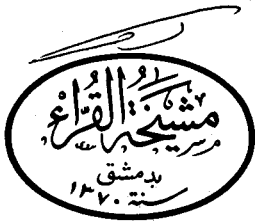 مشيخة القراء
بدمشق
سنة ١٣٧٠